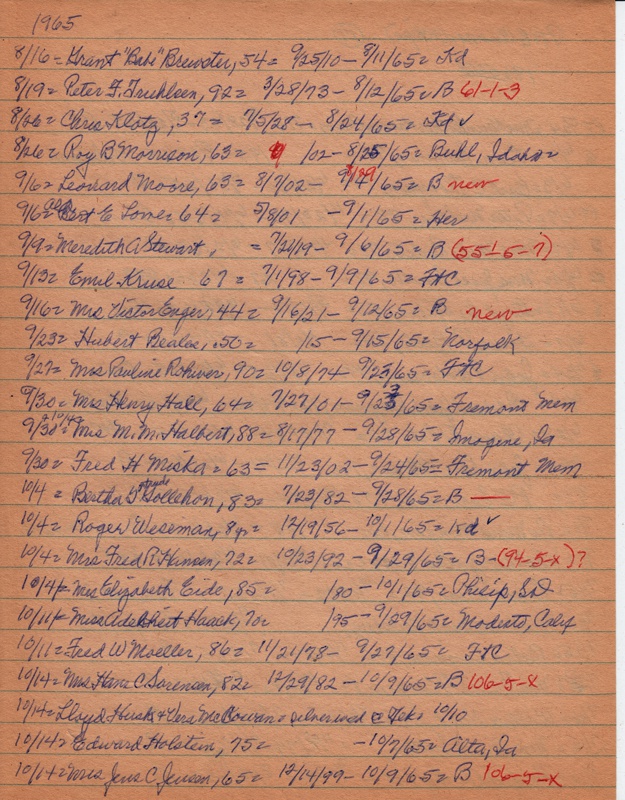 1965
8/16= Grant "Babe" Brewster, 54= 9/25/10 - 8/11/65= Kd
8/19= Peter F. Truhlsen, 92= 3/28/73 - 8/12/65= B 61-1-3
8/26= Chris Klotz, 37= 7/5/28 - 8/24/65= Kd ✓
8/26= Roy B Morrison, 63= /02 - 8/25/65= Buhl, Idaho=
9/6= Leonard Moore, 63= 8/7/02 - 8/29 9/4/65= B new
9/6= Bert E Lowe 64= 5/8/01 - 9/1/65= Her
9/9= Meredith A Stewart, = 7/21/19 - 9/6/65= B (55-5-7)
9/13= Emil Kruse 67= 7/1/98 - 9/9/65= FtC
9/16= Mrs Victor Enger, 44= 9/16/21 - 9/12/65= B new
9/23= Hubert Beales, 50= /15 - 9/15/65= Norfolk
9/27= Mrs Pauline Rohwer, 90= 10/8/74 - 9/23/65= FtC
9/30= Mrs Henry Hall, 64= 7/27/01 - 9/23/65= Fremont Mem
9/30= Mrs M. M. Halbert, 88= 8/17/77 - 9/28/65= Imogine, Ia
9/30= Fred H Miska = 63= 11/23/02 - 9/24/65= Fremont Mem
10/4= Bertha Gollehon, 83= 7/23/82 - 9/28/65= B —
10/4= Roger Weseman, 8yr= 12/19/56 - 10/1/65= Kd ✓
10/4= Mrs Fred R. Hansen, 72= 10/23/92 - 9/29/65= B-(94-5-x)?
10/4= Mrs Elizabeth Eide, 85= /80 - 10/1/65= Philip, S.D
10/11= Miss Haack, 70= /95 - 9/29/65= Modesto, Calif
10/11= Fred W Moeller, 86= 11/21/78 - 9/27/65= FtC
10/14= Mrs Hans C. Sorensen, 82= 12/29/82 - 10/9/65= B 106-5-x
10/14= Lloyd Husk + Vera McCowan = 10/10
10/14= Edward Holstein, 75= - 10/7/65= Alta, Ia
10/14= Mrs Jens C. Jensen, 65= 12/14/99 - 10/9/65= B 106-5-x